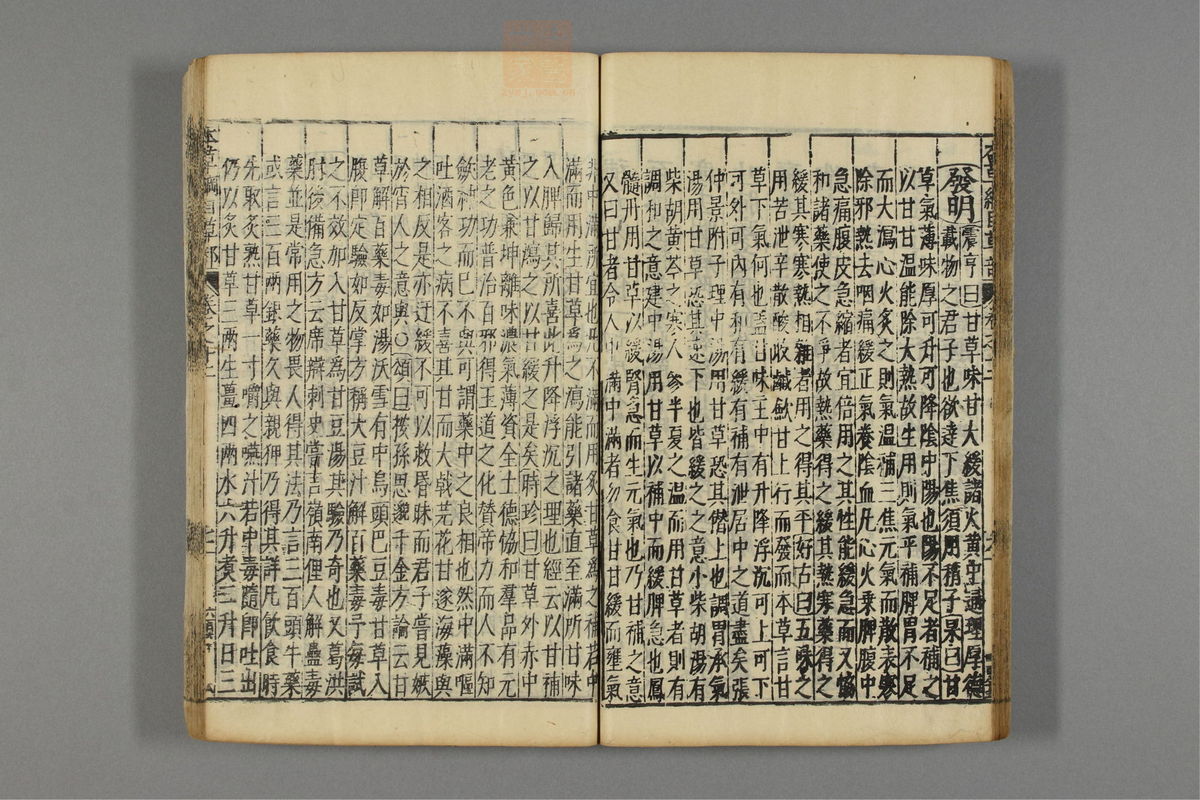 發明震亨曰甘草味甘大緩諸火黃中通理厚德
載物之君子也欲達下焦須用稍子杲曰甘
草氣薄味厚可升可降陰中陽也陽不足者補之
以甘甘溫能除大熱故生用則氣平補脾胃不足
而大瀉心火炙之則氣溫補三焦元氣而散表寒
除邪熱去咽痛緩正氣養陰血凡心火乗脾腹中
急痛腹皮急縮者宜倍用之其性能緩急而又恊
和諸藥使之不爭故熱藥得之緩其熱寒藥得之
緩其寒寒熱相雜者用之得其平好古曰五味之
用苦泄辛散酸收鹹歛甘上行而發而本草言甘
草下氣何也盖甘味主中有升降浮沉可上可下
可外可內有和有緩有補有泄居中之道盡矣張
仲景附子理中湯用甘草恐其僭上也調胃承氣
湯用甘草恐其速下也皆緩之之意小柴胡湯有
柴胡黃芩之寒人參半夏之溫而用甘草者則有
調和之意建中湯用甘草以補中而緩脾急也鳳
髓丹用甘草以緩腎急而生元氣也乃甘補之意
又曰甘者令人中滿中滿者勿食甘甘緩而壅氣
非中滿所宜也凡不滿而用炙甘草為之補若中
滿而用生甘草為之瀉能引諸藥直至滿所甘味
入脾歸其所喜此升降浮沉之理也經云以甘補
之以甘瀉之以甘緩之是矣時珍曰甘草外赤中
黃色兼坤離味濃氣薄資全土德恊和羣品有元
老之功普治百邪得王道之化賛帝力而人不知
歛神功而已不與可謂藥中之良相也然中滿嘔
吐酒客之病不喜其甘而大戟芫花甘遂海藻與
之相反是亦迂緩不可以救昏昧而君子嘗見嫉
於宵人之意與○頌曰按孫思邈千金方論云甘
草解百藥毒如湯沃雪有中烏頭巴豆毒甘草入
腹即定驗如反掌方稱大豆汁解百藥毒予每試
之不效加入甘草為甘豆湯其驗乃奇也又葛洪
肘後備急方云席辯刺史嘗言嶺南俚人解蠱毒
藥並是常用之物畏人得其法乃言三百頭牛藥
或言三百兩銀藥久與親狎乃得其詳凡飲食時
先取炙熟甘草一寸嚼之嚥汁若中毒隨即吐出
仍以炙甘草三兩生薑四兩水六升煮二升日三